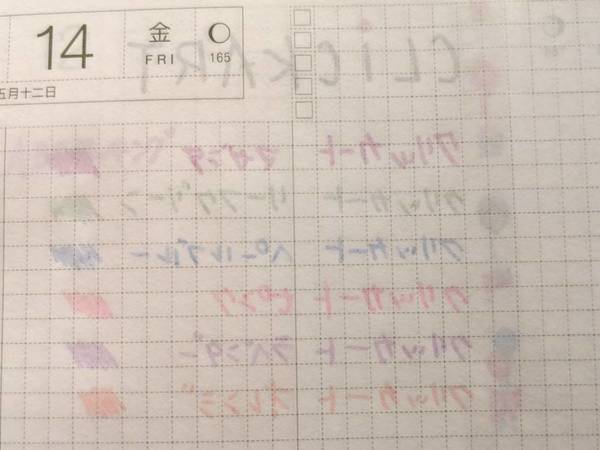 14 金
FRI 165
五月十二日
CLICKART
クリッカート マゼンタ
クリッカート リーフグリーン
クリッカート ペールブルー
クリッカート ピンク
クリッカート ラベンダー
クリッカート オレンジ